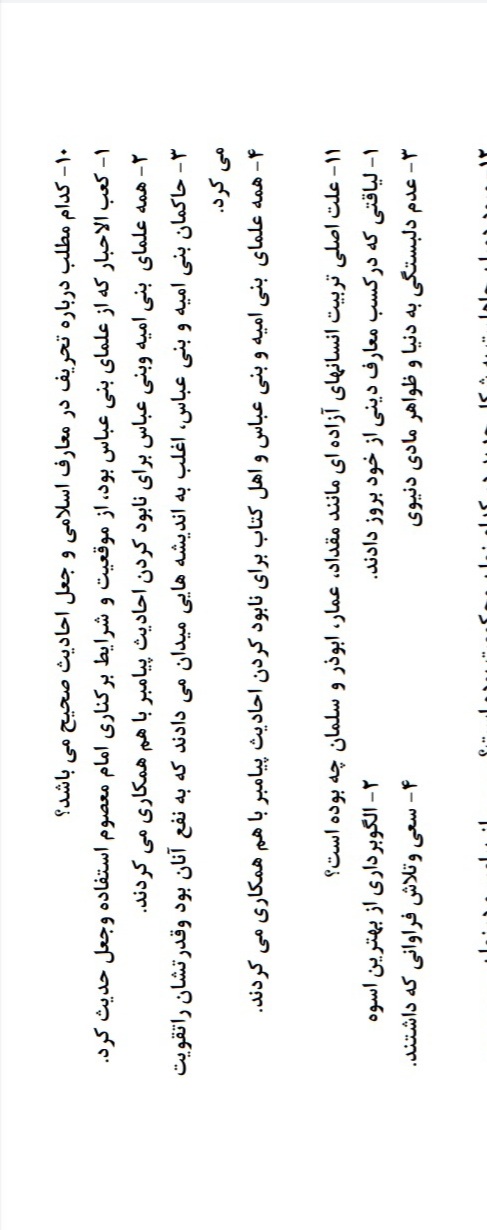 ۱۰- کدام مطلب درباره تحریف در معارف اسلامی و جعل احادیث صحیح می باشد؟
۱- کعب الاحبار که از علمای بنی عباس بود، از موقعیت و شرایط برکناری امام معصوم استفاده وجعل حدیث کرد.
۲- همه علمای بنی امیه وبنی عباس برای نابود کردن احادیث پیامبر با هم همکاری می کردند.
۳- حاکمان بنی امیه و بنی عباس، اغلب به اندیشه هایی میدان می دادند که به نفع آنان بود وقدرتشان راتقویت
می کرد.
۴- همه علمای بنی امیه و بنی عباس و اهل کتاب برای نابود کردن احادیث پیامبر با هم همکاری می کردند.
۱۱- علت اصلی تربیت انسانهای آزاده ای مانند مقداد، عمار، ابوذر و سلمان چه بوده است؟
۱- لیاقتی که درکسب معارف دینی از خود بروز دادند. ۲- الگوبرداری از بهترین اسوه
۳- عدم دلبستگی به دنیا و ظواهر مادی دنیوی ۴- سعی وتلاش فراوانی که داشتند.